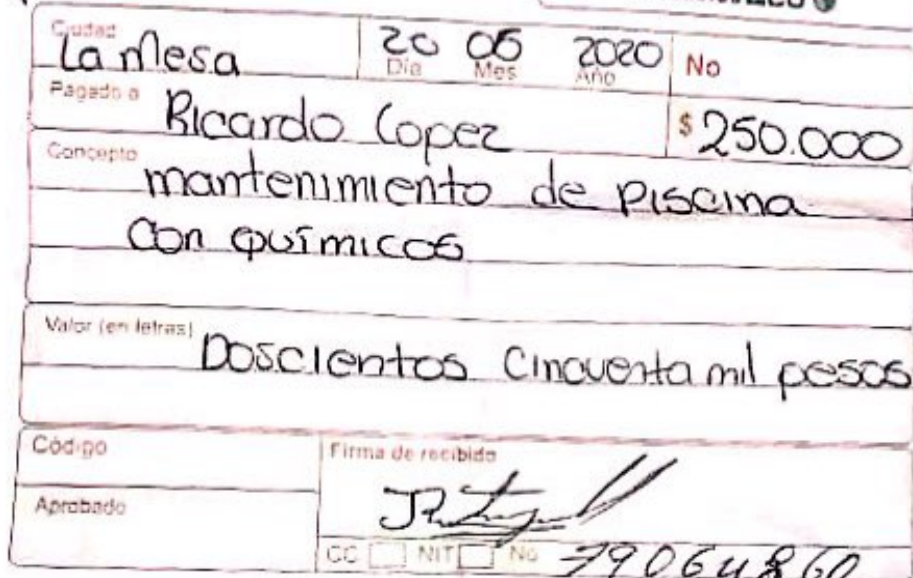 Ciudad
La mesa
20 05 2020
Día Mes Año
No
Pagado a
Ricardo Lopez
$ 250.000
Concepto
mantenimiento de piscina
con químicos
Valor (en letras)
Doscientos Cincuenta mil pesos
Código
Firma de recibido
Aprobado
CC NIT No 79064860